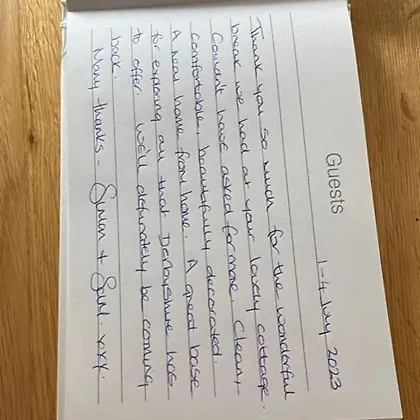 Guests
1-4 July 2023
Thank you so much for the wonderful
break we had at your lovely cottage.
Couldn't have asked for more. Clean,
comfortable, beautifully decorated.
A real home from home. A great base
for exploring all that Derbyshire has
to offer. We'll definately be coming
back.
Many thanks - Simon + Sall. xxx.